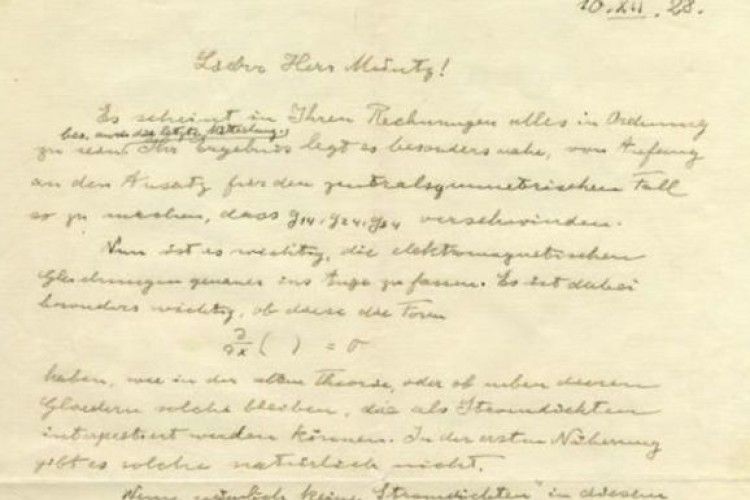 10.XII.28.
Lieber Herr Müntz!
Es scheint in Ihren Rechnungen alles in Ordnung
bes. der letzten Mitteilung.
zu sein. Ihr Ergebnis legt es besonders nahe, von Anfang
an den Ansatz für den zentralsymmetrischen Fall
so zu machen, dass g14, g24, g34 verschwinden.
Nun ist es wichtig, die elektromagnetischen
Gleichungen genauer ins Auge zu fassen. Es ist dabei
besonders wichtig, ob diese die Form
∂/∂x ( ) = 0
haben, wie in der alten Theorie, oder ob neben diesen
Gliedern solche bleiben, die als Stromdichten
interpretiert werden können. In der ersten Näherung
gibt es solche natürlich nicht.
Wenn nämlich keine "Stromdichten" in diesem